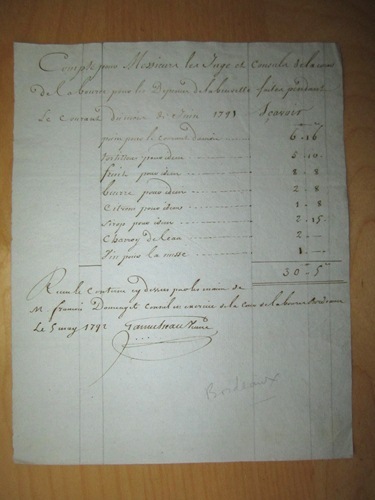 Compte pour Messieurs les Juge et Consuls de la cour
de la bourse pour les Depences de la buvette faites pendant
Le Courant du mois 1791 Scavoir
pain pour le courant 6 - 16
pour idem 5 - 10
fruit pour idem 8 - 8
beurre pour idem 2 - 8
Citrons pour idem 1 - 8
Sirop pour idem 2 - 15
de leau 2 -
Vin pour la messe 1 -
30 - 5
Recu le Contenu cy dessus par les mains de
Mr Domenget Consul en exercice de la Cour de la bourse Bordeaux
Le 5 may 1792
Bordeaux